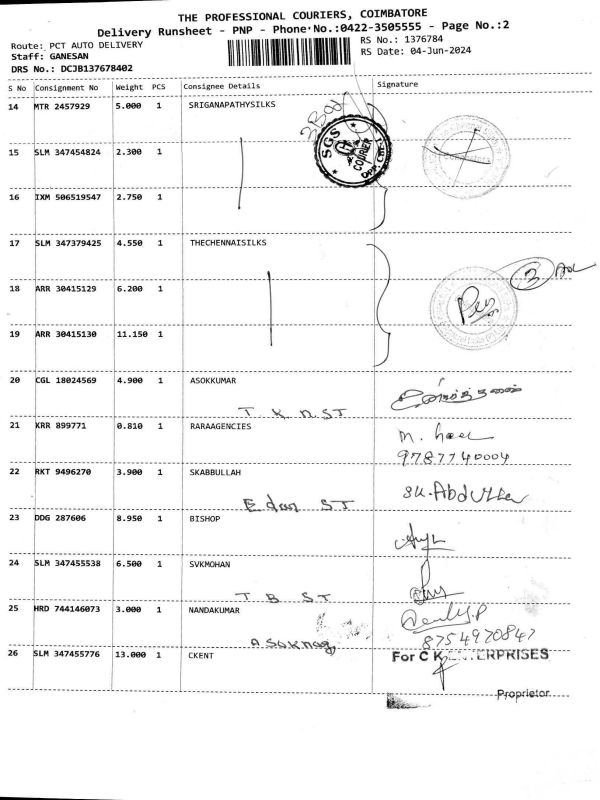 THE PROFESSIONAL COURIERS, COIMBATORE
Delivery Runsheet - PNP - Phone No.:0422-3505555 - Page No.:2
Route: PCT AUTO DELIVERY
RS No.: 1376784
Staff: GANESAN
RS Date: 04-Jun-2024
DRS No.: DCJB137678402
S No Consignment No Weight PCS Consignee Details Signature
14 MTR 2457929 5.000 1 SRIGANAPATHYSILKS
SGS
COURIER
15 SLM 347454824 2.300 1
16 IXM 506519547 2.750 1
17 SLM 347379425 4.550 1 THECHENNAISILKS
3
18 ARR 30415129 6.200 1
19 ARR 30415130 11.150 1
20 CGL 18024569 4.900 1 ASOKKUMAR
T K N ST
21 KRR 899771 0.810 1 RARAAGENCIES
9787740004
22 RKT 9496270 3.900 1 SKABBULLAH
SK.Abdulla
ST
23 DDG 287606 8.950 1 BISHOP
24 SLM 347455538 6.500 1 SVKMOHAN
T B ST
25 HRD 744146073 3.000 1 NANDAKUMAR
8754970847
26 SLM 347455776 13.000 1 CKENT
For C K ENTERPRISES
Proprietor